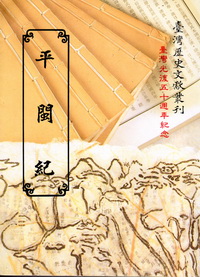 臺灣歷史文獻叢刊
臺灣光復五十週年紀念
平閩紀